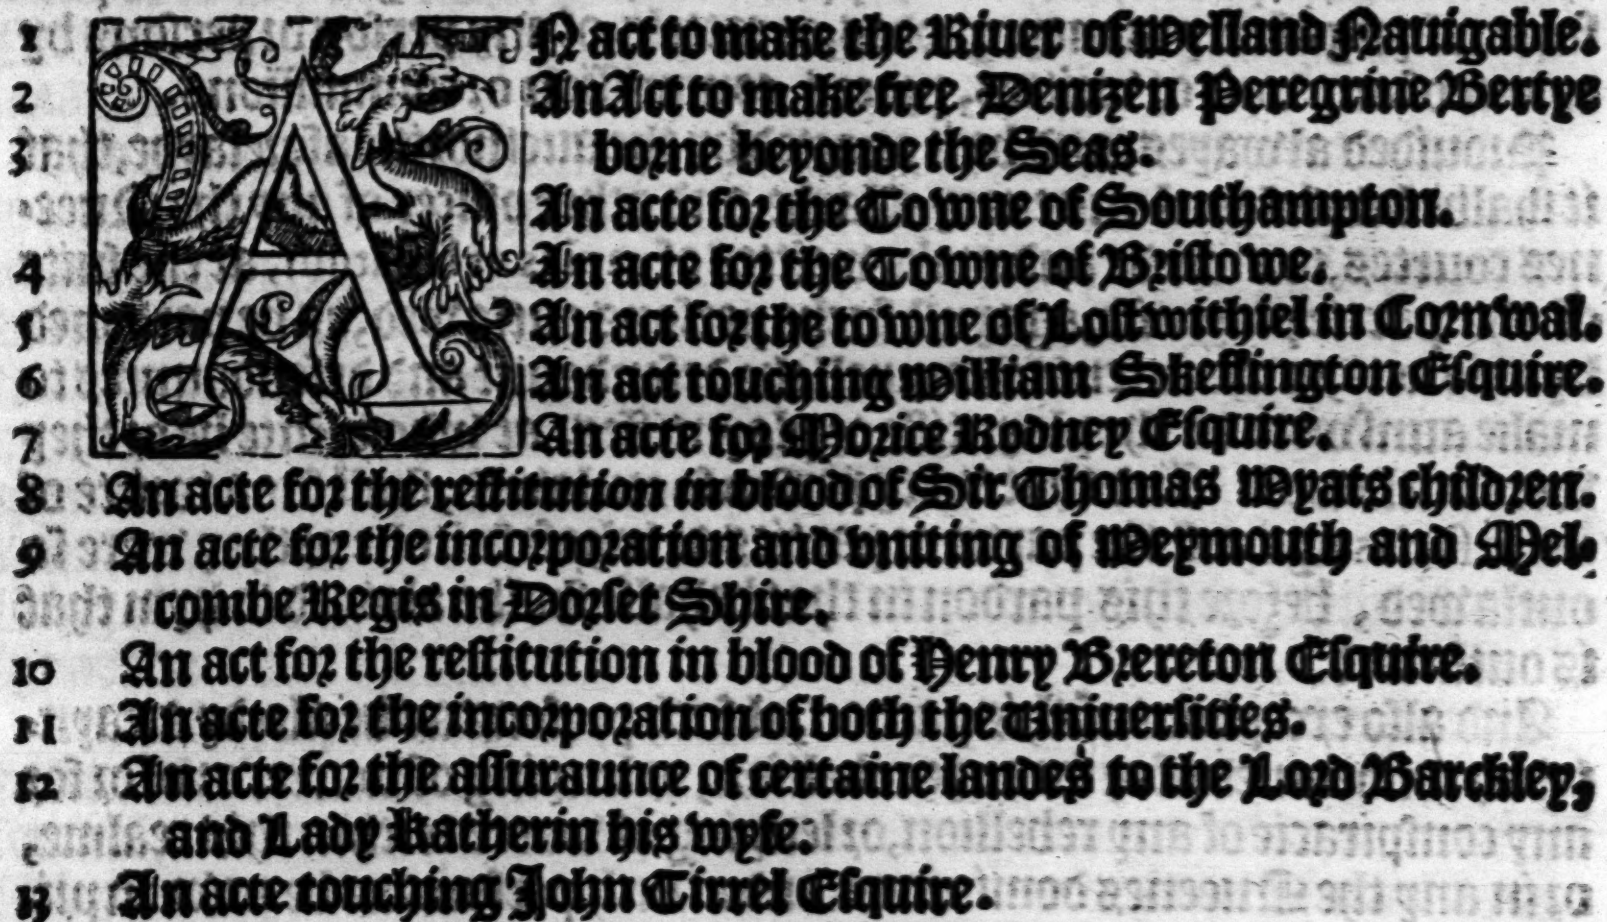 1 AN act to make the Riuer of Welland Nauigable.
2 An Act to make free Denizen Peregrine Bertye
3 borne beyonde the Seas.
An acte for the Towne of Southampton.
4 An acte for the Towne of Bristowe.
5 An act for the towne of Lostwithiel in Cornwal.
6 An act touching William Skeffington Esquire.
7 An acte for Morice Rodney Esquire.
8 An acte for the restitution in blood of Sir Thomas Wyats children.
9 An acte for the incorporation and vniting of Weymouth and Mel-
combe Regis in Dorset Shire.
10 An act for the restitution in blood of Henry Brereton Esquire.
11 An acte for the incorporation of both the Uniuersities.
12 An acte for the assuraunce of certaine landes to the Lord Barckley,
and Lady Katherin his wyfe.
13 An acte touching John Tirrel Esquire.